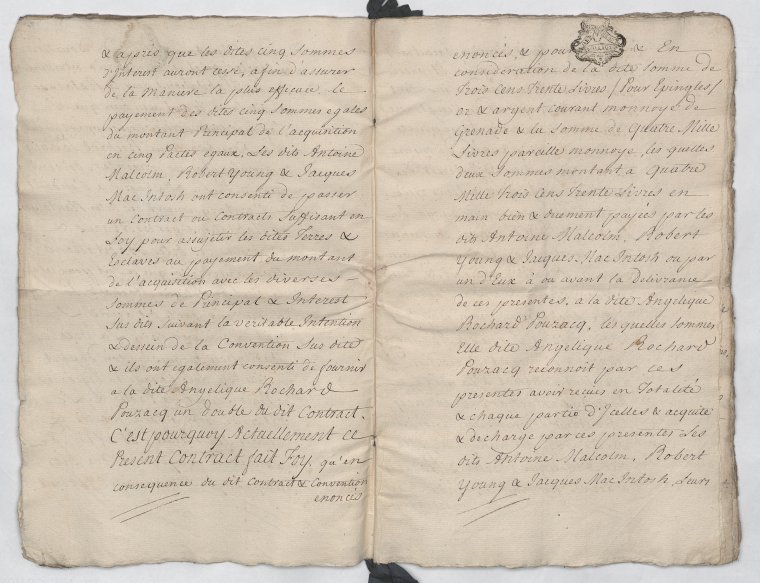 & après que les dites cinq sommes
d'Interest auront cessé, afin d'assurer
de la Maniere la plus efficace le
payement des dites cinq sommes egales
du montant Principal de l'acquisition
en cinq Pactes egaux, Les dits Antoine
Malcolm, Robert Young & Jacques
Mac Intosh ont consenti de passer
un Contract ou Contracts Suffisant en
Loy pour assujeter les dites Terres &
Esclaves au payement du montant
de l'acquisition avec les diverses
Sommes de Principal & Interest
Sus dits suivant la veritable Intention
& dessein de la Convention Sus dite
& ils ont egalement consenti de fournir
a la dite Angelique Rochard
Pouzacq un double du dit Contract.
C'est pourquoy Actuellement ce
Present Contract fait Foy, qu'en
consequence du dit Contract & Convention
enoncés
enoncés, & pour & En
consideration de la dite somme de
Trois Cens Trente Livres / Pour Epingles /
or & argent courant monnoye de
Grenade & la somme de Quatre Mille
Livres pareille monnoye, les quelles
deux sommes montant à Quatre
Mille Trois Cens Trente Livres en
main bien & duement payées par les
dits Antoine Malcolm, Robert
Young & Jacques Mac Intosh ou par
un d'Eux à ou avant la Delivrance
de ces presentes, a la dite Angelique
Rochard Pouzacq, les quelles sommes
Elle dite Angelique Rochard
Pouzacq reconnoit par ces
presentes avoir recues en Totalité
& chaque partie d'Jcelles & acquite
& decharge par ces presentes Les
dits Antoine Malcolm, Robert
Young & Jacques Mac Intosh, Leurs